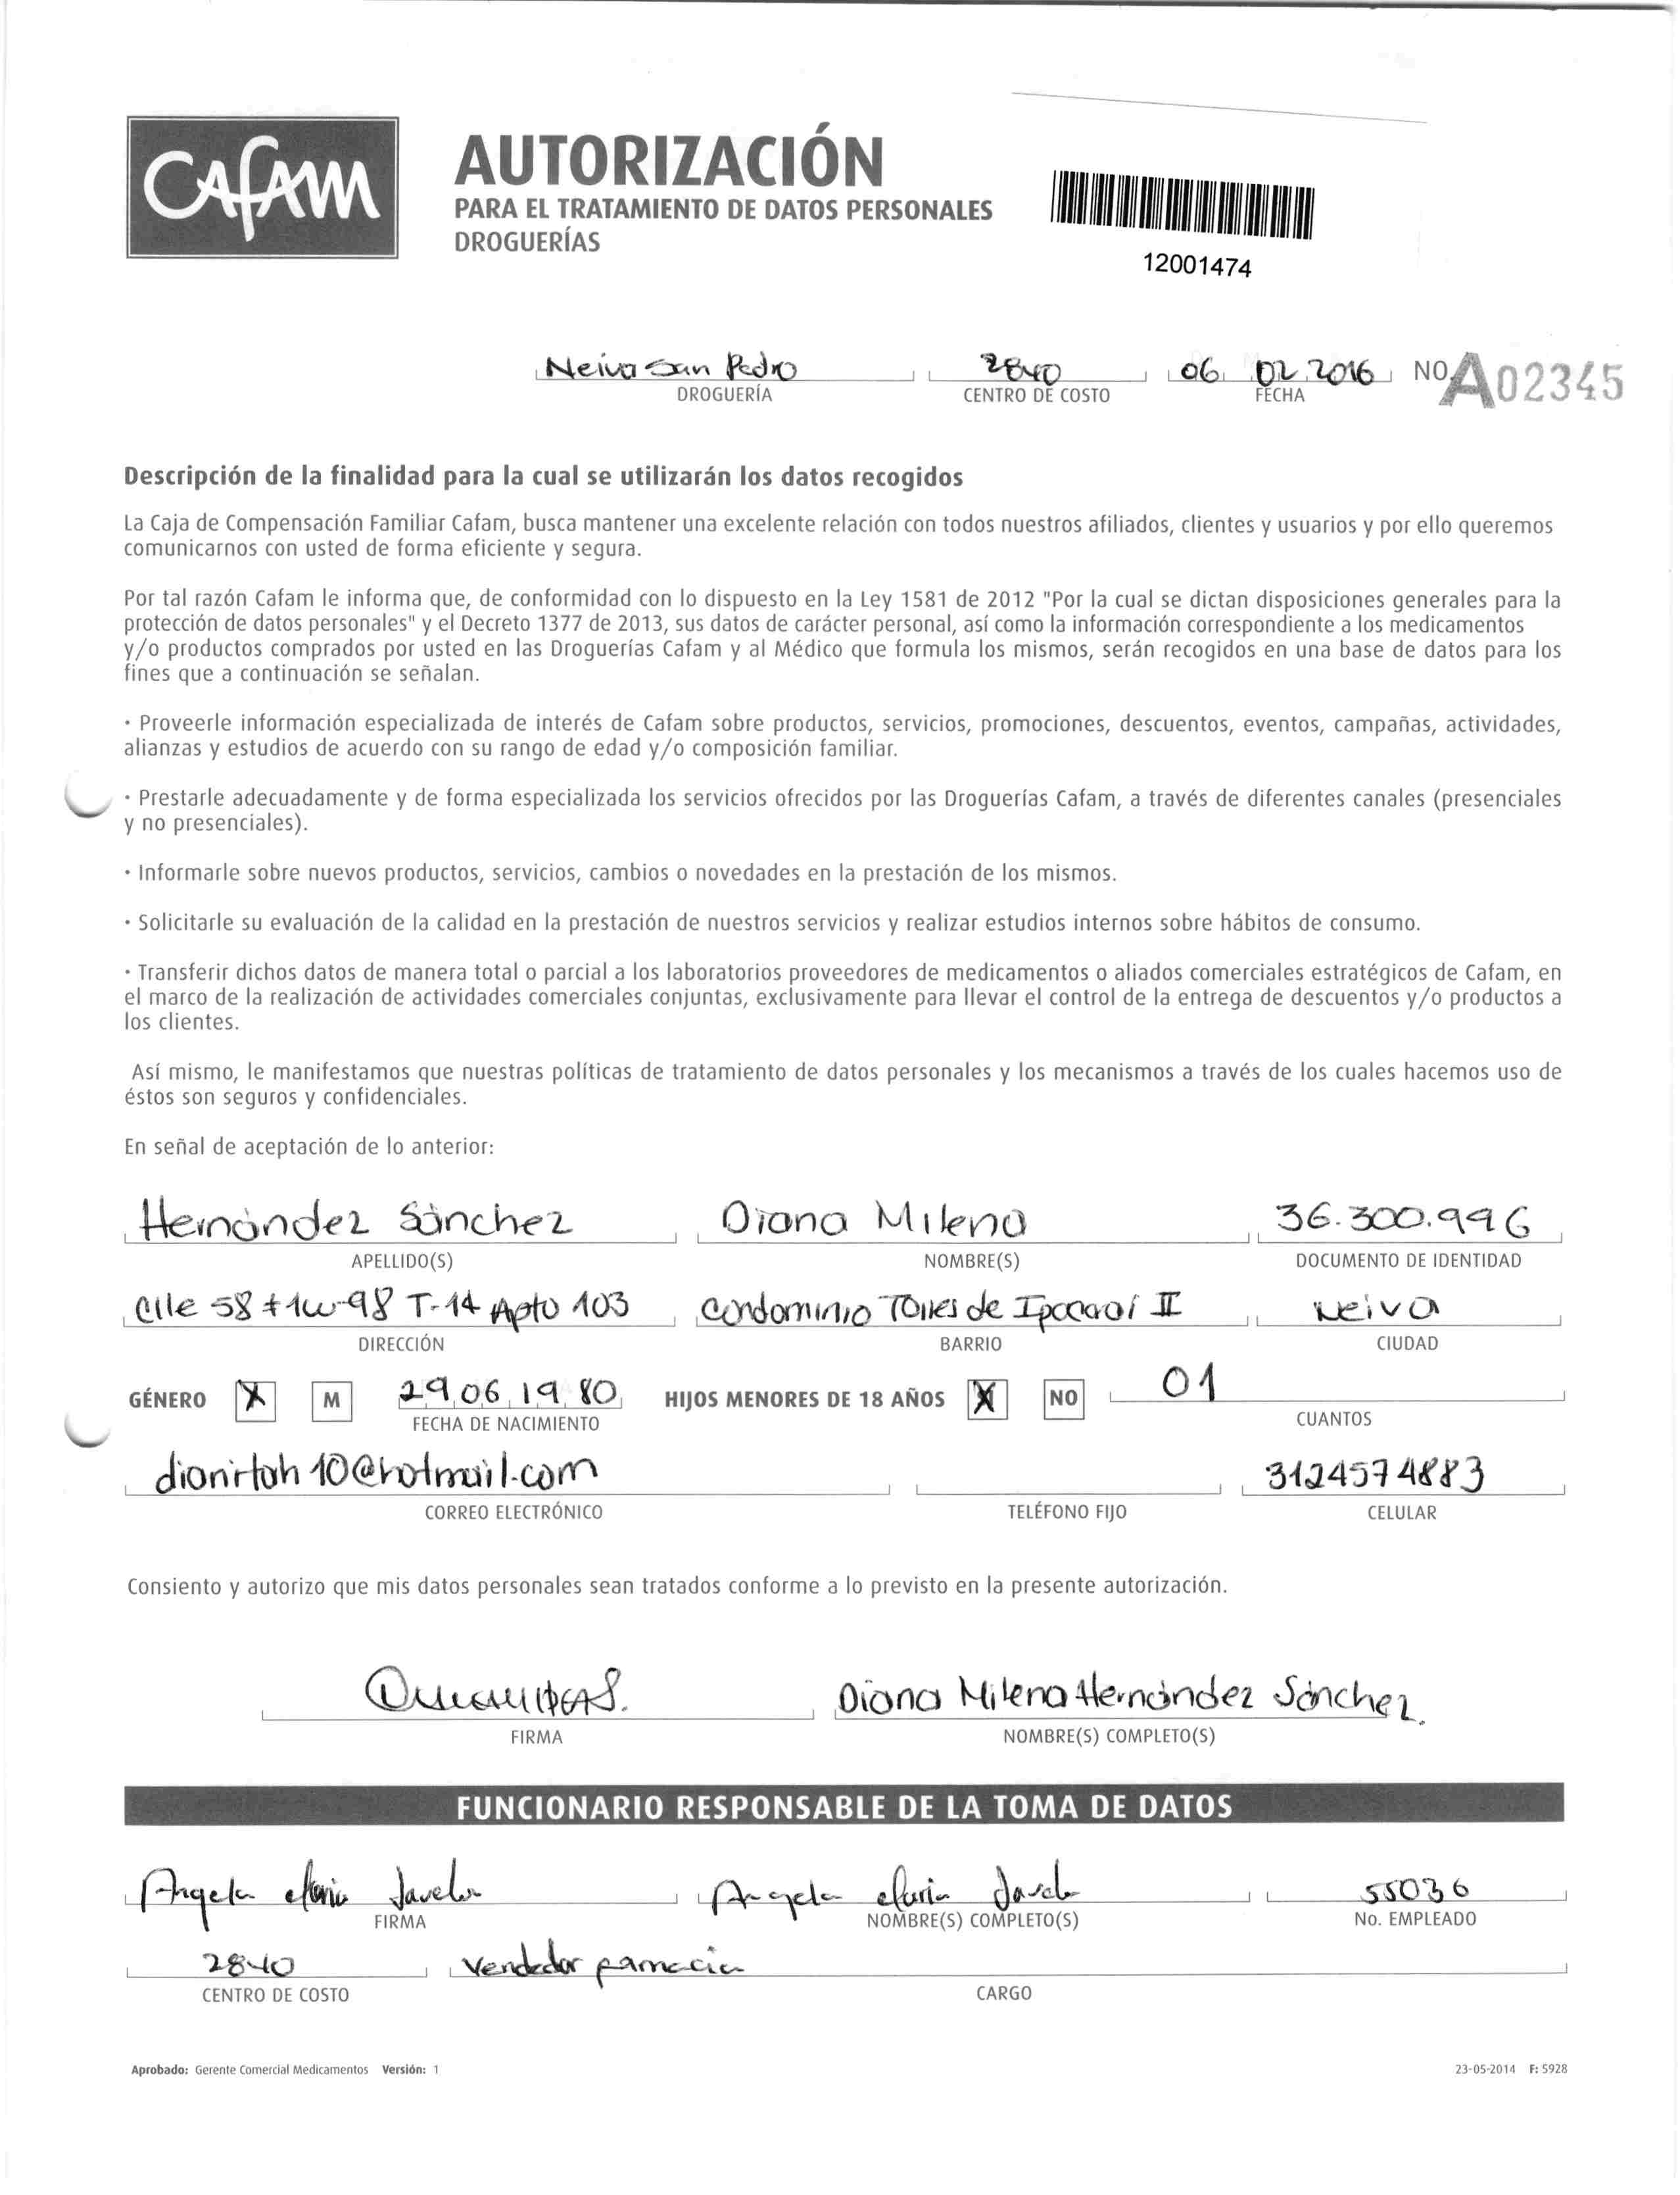 CAFAM
AUTORIZACIÓN
PARA EL TRATAMIENTO DE DATOS PERSONALES
DROGUERÍAS
12001474
Neiva San Pedro 2840 06 02 2016 NO A02345
DROGUERÍA CENTRO DE COSTO FECHA
Descripción de la finalidad para la cual se utilizarán los datos recogidos
La Caja de Compensación Familiar Cafam, busca mantener una excelente relación con todos nuestros afiliados, clientes y usuarios y por ello queremos
comunicarnos con usted de forma eficiente y segura.
Por tal razón Cafam le informa que, de conformidad con lo dispuesto en la Ley 1581 de 2012 "Por la cual se dictan disposiciones generales para la
protección de datos personales" y el Decreto 1377 de 2013, sus datos de carácter personal, así como la información correspondiente a los medicamentos
y/o productos comprados por usted en las Droguerías Cafam y al Médico que formula los mismos, serán recogidos en una base de datos para los
fines que a continuación se señalan.
· Proveerle información especializada de interés de Cafam sobre productos, servicios, promociones, descuentos, eventos, campañas, actividades,
alianzas y estudios de acuerdo con su rango de edad y/o composición familiar.
· Prestarle adecuadamente y de forma especializada los servicios ofrecidos por las Droguerías Cafam, a través de diferentes canales (presenciales
y no presenciales).
· Informarle sobre nuevos productos, servicios, cambios o novedades en la prestación de los mismos.
· Solicitarle su evaluación de la calidad en la prestación de nuestros servicios y realizar estudios internos sobre hábitos de consumo.
· Transferir dichos datos de manera total o parcial a los laboratorios proveedores de medicamentos o aliados comerciales estratégicos de Cafam, en
el marco de la realización de actividades comerciales conjuntas, exclusivamente para llevar el control de la entrega de descuentos y/o productos a
los clientes.
Así mismo, le manifestamos que nuestras políticas de tratamiento de datos personales y los mecanismos a través de los cuales hacemos uso de
éstos son seguros y confidenciales.
En señal de aceptación de lo anterior:
Hernández Sánchez Diana Milena 36.300.996
APELLIDO(S) NOMBRE(S) DOCUMENTO DE IDENTIDAD
Clle 58 # 1w-98 T-14 Apto 103 Condominio Torres de Ipacaraí II Neiva
DIRECCIÓN BARRIO CIUDAD
GÉNERO X M 29 06 1980 HIJOS MENORES DE 18 AÑOS X NO 01
FECHA DE NACIMIENTO CUANTOS
@hotmail.com 3124574883
CORREO ELECTRÓNICO TELÉFONO FIJO CELULAR
Consiento y autorizo que mis datos personales sean tratados conforme a lo previsto en la presente autorización.
Diana Milena Hernández Sánchez.
FIRMA NOMBRE(S) COMPLETO(S)
FUNCIONARIO RESPONSABLE DE LA TOMA DE DATOS
Angela Maria Angela Maria 55036
FIRMA NOMBRE(S) COMPLETO(S) No. EMPLEADO
2840 Vendedor farmacia
CENTRO DE COSTO CARGO
Aprobado: Gerente Comercial Medicamentos Versión: 1 23-05-2014 F: 5928